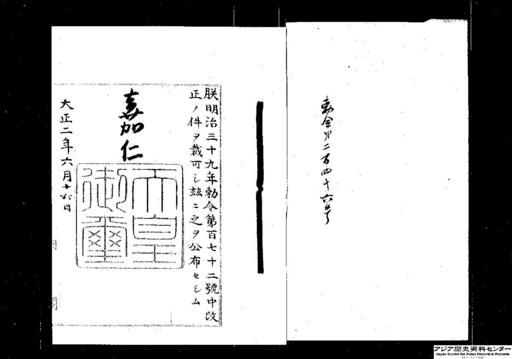 勅令第二百四十六号
朕明治三十九年勅令第百七十二號中改
正ノ件ヲ裁可シ茲ニ之ヲ公布セシム
嘉仁
天皇
御璽
大正二年六月十六日
アジア歴史資料センター
Japan Center for Asian Historical Records